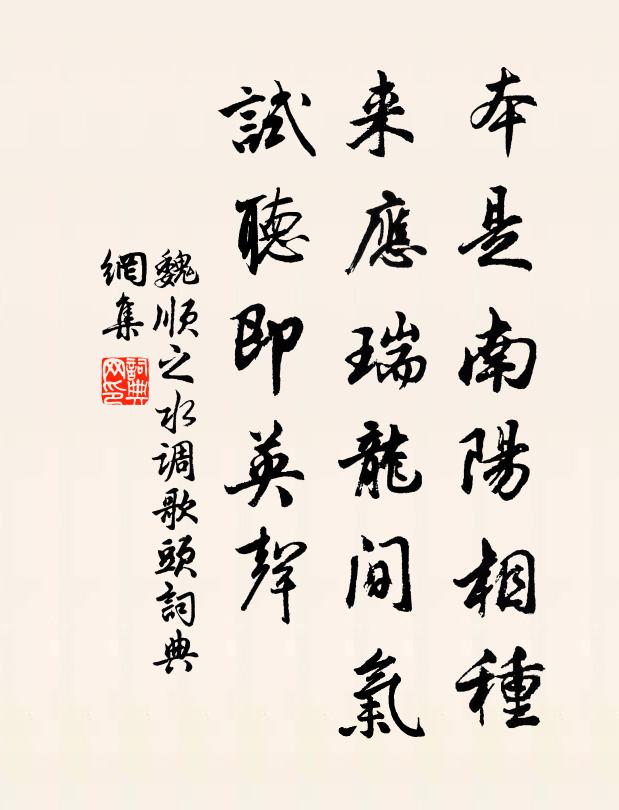 本是南陽相種
来應瑞龍間氣
試聽即英聲
魏順之水调歌頭詞典
網集
詞典
网印